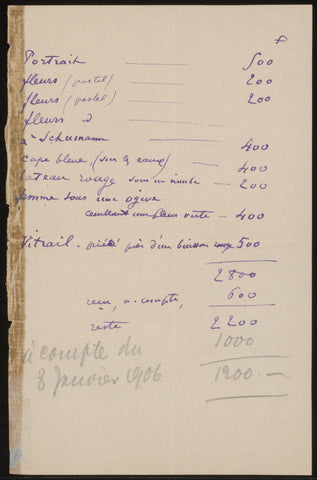 F
Portrait — 500
fleurs (pastel) — 200
fleurs (pastel) — 200
fleurs d
a Schumann — 400
cape bleue (sur l eau) — 400
bateau rouge sous un nimbe — 200
femme sous une ogive
cueillant une fleur verte — 400
Vitrail. près d'un buisson rouge 500
2800
reçu, a-compte, 600
reste 2200
à compte du 1000
8 Janvier 1906 1200.—